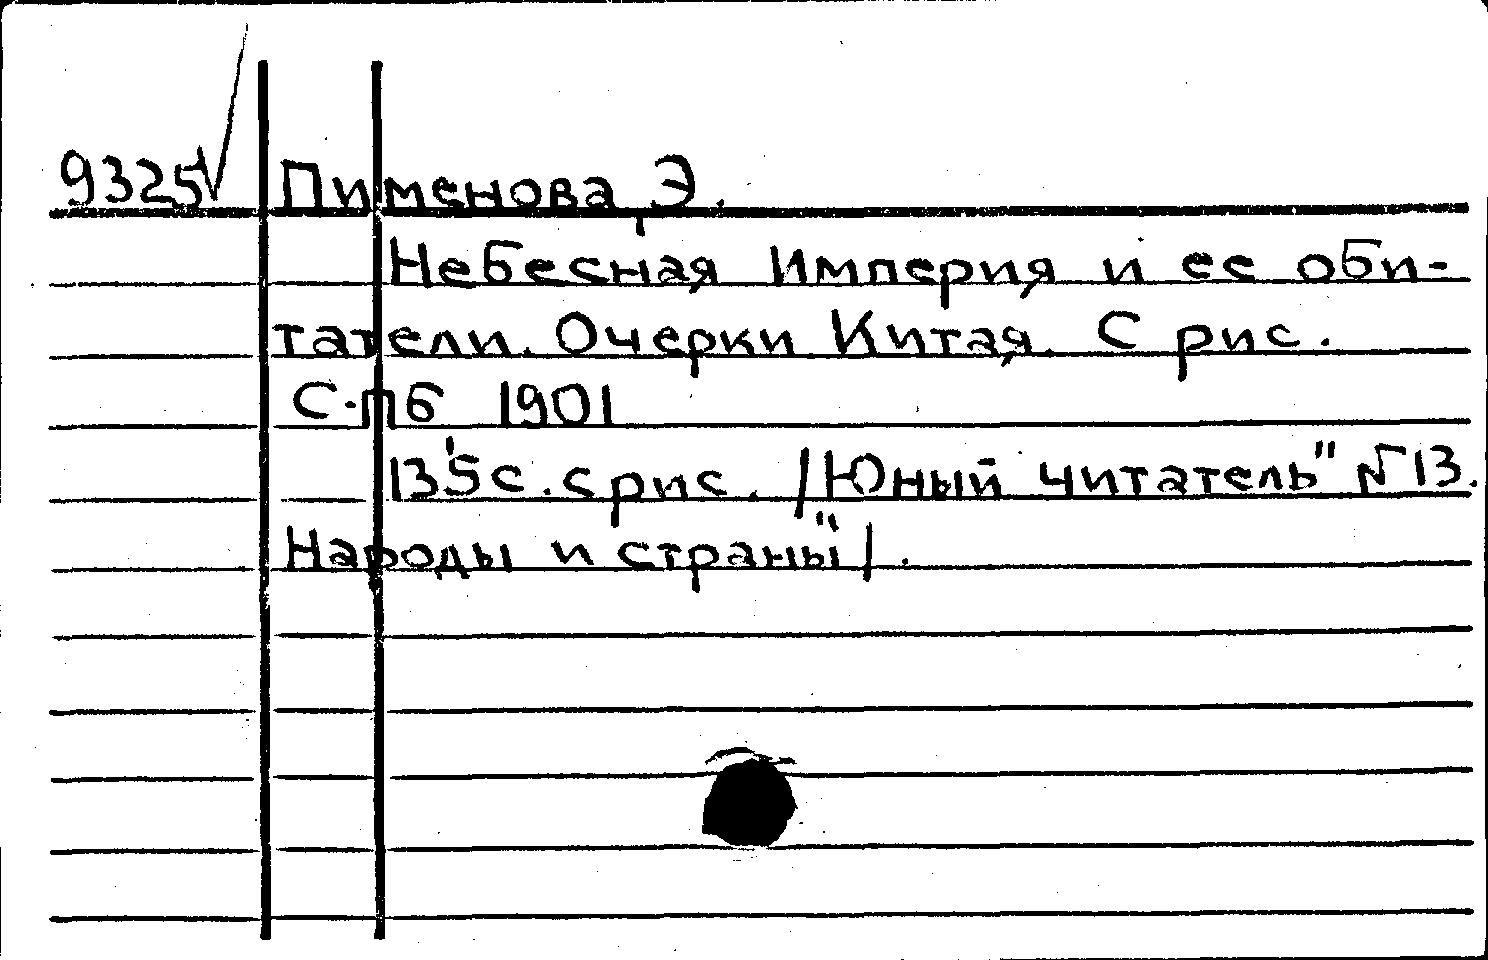 9325 Пименова Э.
Небесная Империя и ее оби-
татели. Очерки Китая. С рис.
С-Пб 1901
135 с. с рис. /"Юный читатель" № 13.
Народы и страны"/.